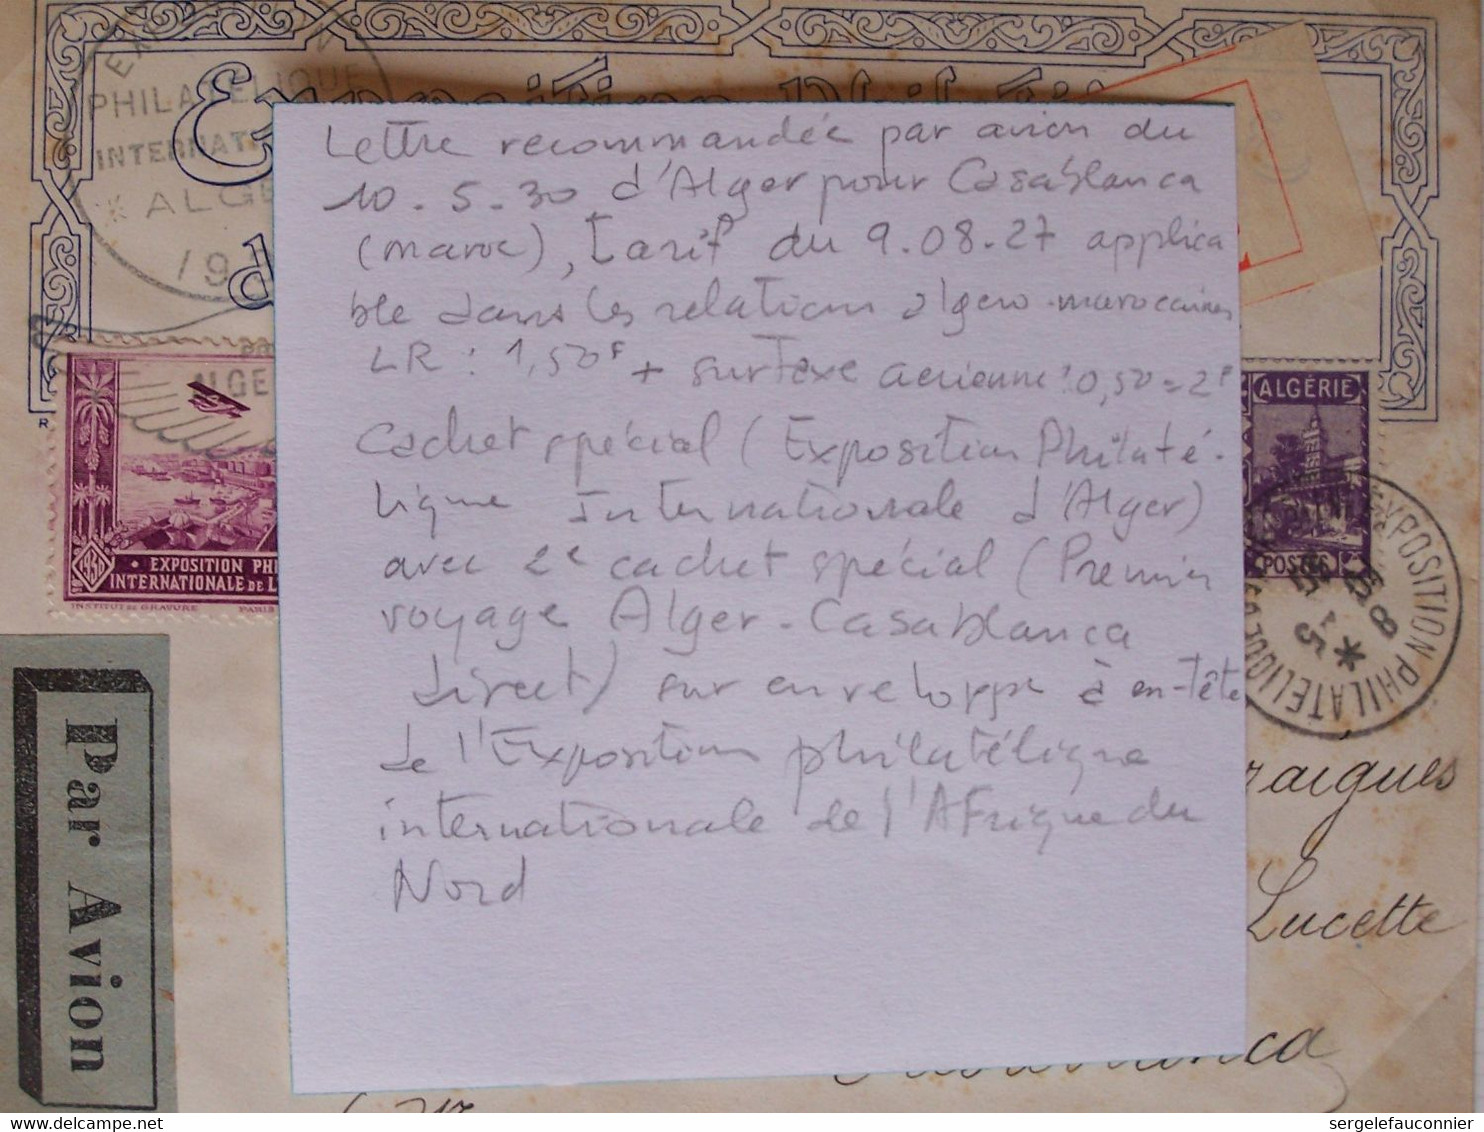 PHILATELIQUE
Lettre recommandée par avion du
10.5.30 d'Alger pour Casablanca
(maroc), tarif du 9.08.27 applica
ble dans les relations algero-marocaines
LR : 1,50F + surtaxe aérienne : 0,50 = 2F
Cachet spécial (Exposition Philaté-
lique Internationale d'Alger)
avec 2e cachet spécial (Premier
voyage Alger-Casablanca
direct) sur enveloppe à en-tête
de l'Exposition philatélique
internationale de l'Afrique du
Nord
1930
EXPOSITION PHI
INTERNATIONALE DE L
INSTITUT DE GRAVURE PARIS
Par Avion
ALGÉRIE
POSTES
EXPOSITION PHILATELIQUE
raigues
Lucette
sergelefauconnier